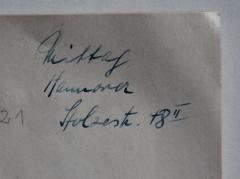 Mittag
Hannover
Stolzestr. 18 II
21